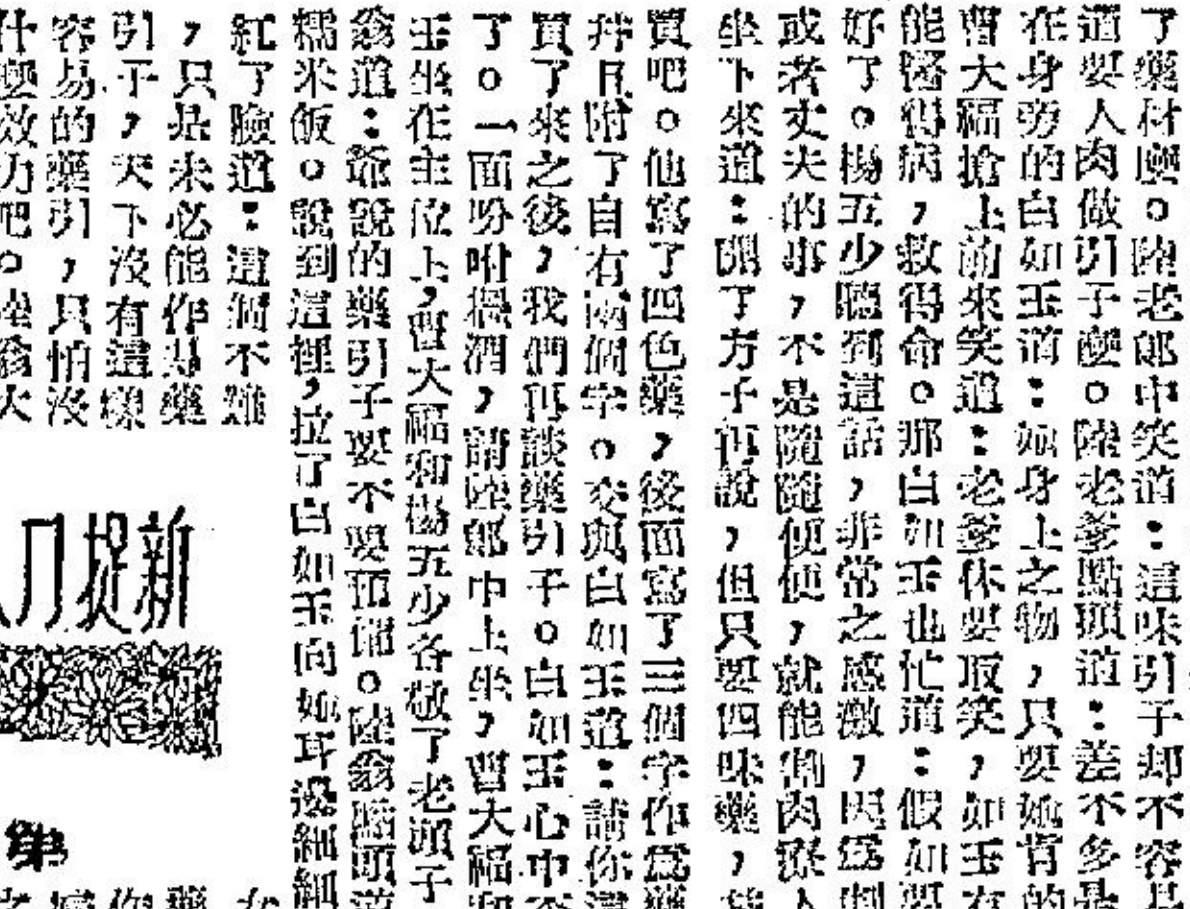 了藥材麼。陸老郎中笑道：這味引子却不容
道要人肉做引子麼。陸老爹點頭道：差不多是
在身旁的白如玉道：她身上之物，只要她肯的
曹大福搶上前來笑道：老爹休要取笑，如玉有
能醫得病，救得命。那白如玉也忙道：假如要
好了。楊五少聽到這話，非常之感激，因爲割
或者丈夫的事，不是隨隨便便，就能割肉療人
坐下來道：開了方子再說，但只要四味藥，
買吧。他寫了四色藥，後面寫了三個字作爲藥
幷且附了自有兩個字。交與白如玉道：請你還
買了來之後，我們再談藥引子。白如玉心中不
了。一面吩咐搵酒，請陸郎中上坐，曹大福和
玉坐在主位上，曹大福和楊五少各敬了老頭子
翁道：爺說的藥引子要不要預備。陸翁點頭道
糯米飯。說到這裡，拉了白如玉向她耳邊細細
紅了臉道：這個不難
，只是未必能作得藥
引子，天下沒有這樣
容易的藥引，只怕沒
什麼效力吧。陸翁大
新捉刀人
第